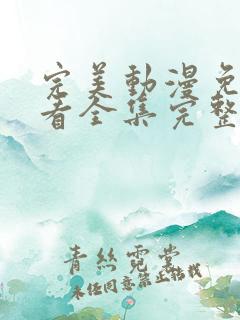 完美動漫免
看全集完整
青丝霓裳
未经同意禁止转载